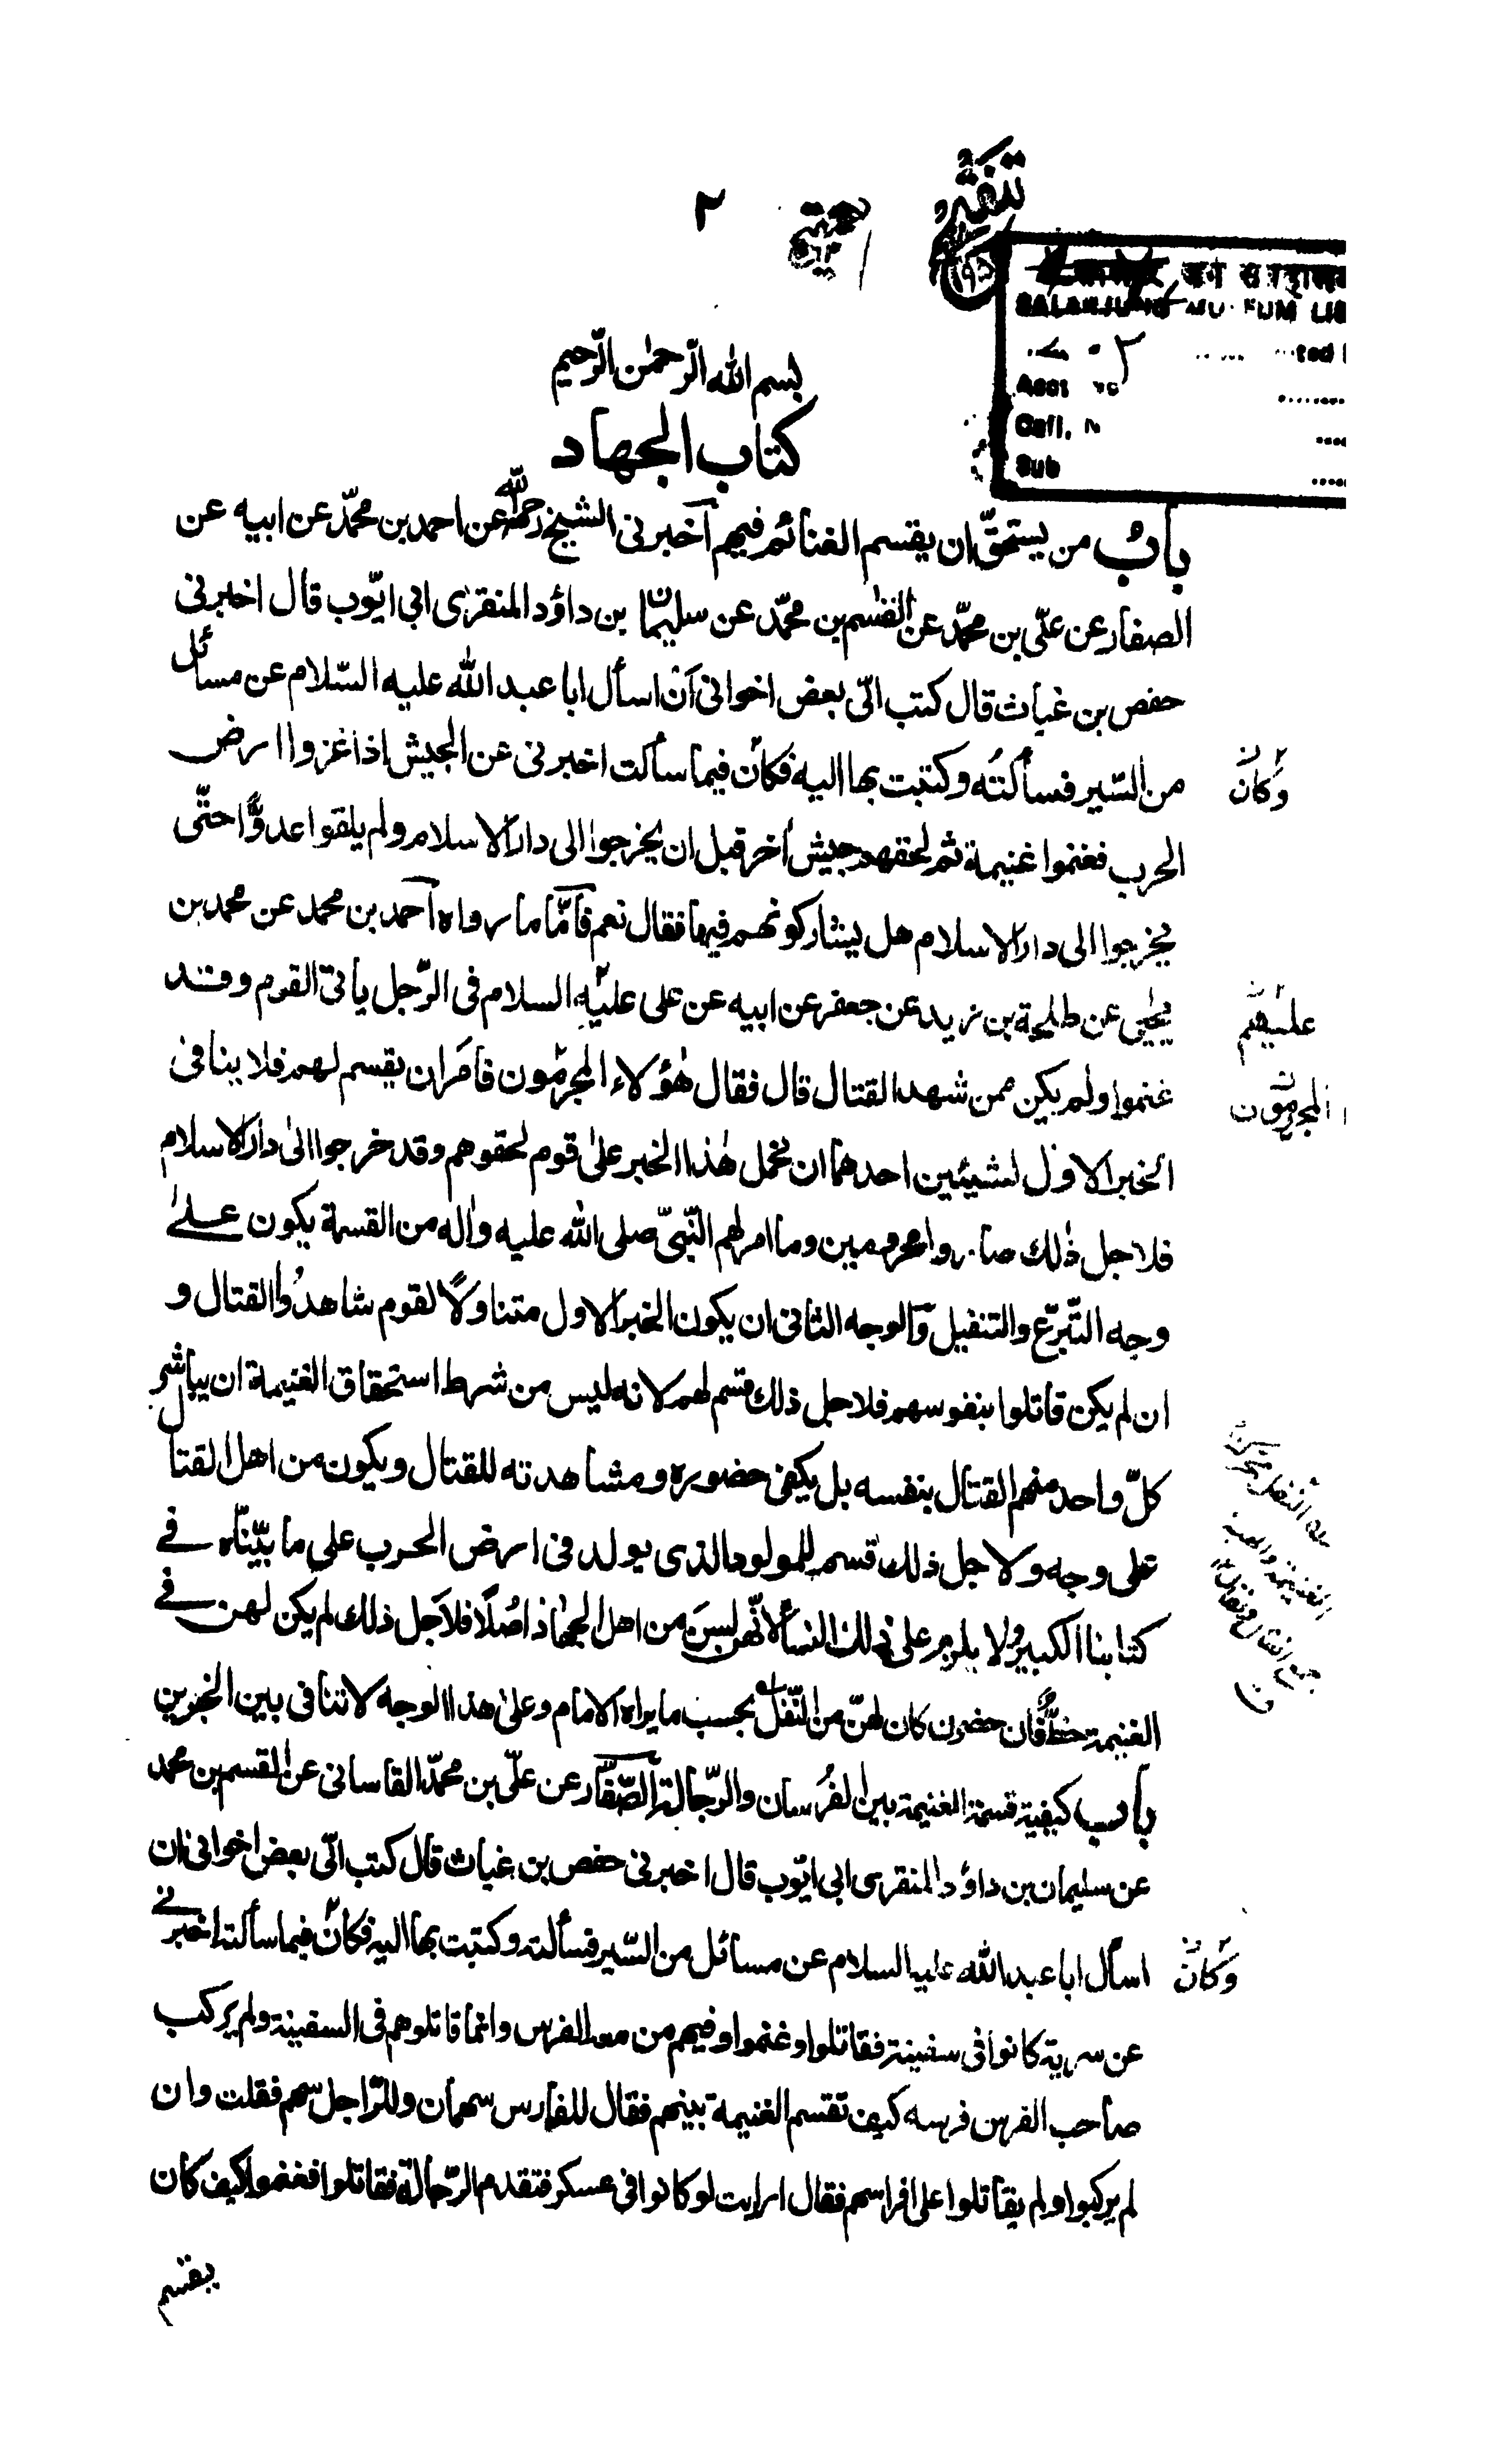 ٢
SALARJUNG MUSEUM LIB
Call. N
Sub
بسم الله الرّحمٰن الرّحيم
كتاب الجهاد
باب من يستحقّ ان يقسم الغنائم فيهم آخبرنى الشيخ رحمه الله عن احمد بن محمّد عن ابيه عن
الصفار عن علّى بن محمّد عن القٰسم بن محمّد عن سليمان بن داؤد المنقرى ابى ايّوب قال اخبرنى
حفص بن غياث قال كتب الّى بعض اخوانى اَنْ اسأل ابا عبد الله عليه السّلام عن مسائل
من السّير فسألتُه وكتبت بها اليه فكان فيما سألت اخبرنى عن الجيش اذا غزوا ارض
وَكانَ
الحرب فغنموا غنيمة ثم لحقهم جيش اٰخر قبل ان يخرجوا الى دار الاسلام ولم يلقوا عدوًّا حتّى
يخرجوا الى دار الاسلام هل يشاركونهم فيها فقال نعم فآمّا ما رواه آحمد بن محمد عن محمد بن
يحيٰى عن طلحة بن زيد عن جعفر عن ابيه عن على عليه السلام فى الرّجل يأتى القوم وقد
عليهم
غنموا ولم يكن ممن شهد القتال قال فقال هٰؤلاء المحرمون فأمَر ان يقسم لهم فلا ينافى
المحرمون
الخبر الاول لشيئين احدهما ان نحمل هٰذا الخبر علىٰ قوم لحقوهم وقد خرجوا الىٰ دار الاسلام
فلاجل ذٰلك صاروا محرومين وما امر لهم النّبىّ صلى الله عليه واٰله من القسمة يكون علىٰ
وجه التّبرّع والتنفيل وٓالوجه الثانى ان يكون الخبر الاول متناولًا لقوم شاهدُوا القتال و
ان لم يكن قاتلوا بنفوسهم فلاجل ذلك قسم لهم لانه ليس من شرط استحقاق الغنيمة ان يباشر
كلّ واحد منهم القتال بنفسه بل يكفى حضوره ومشاهدته للقتال ويكون من اهل القتال
على وجه ولاجل ذلك قسم للمولود الذى يولد فى ارض الحرب على ما بيّنّاه فى
كتابنا الكبير ولا يلزم على ذلك النسأ لانّهن ليسَ من اهل الجهاد اصُلًا فلاَجل ذلك لم يكن لهن فى
الغنيمة حظٌّ فان حضرن كان لهنّ من النّفل بحسب ما يراه الامام وعلىٰ هذا الوجه لا تنافى بين الخبرين
باب كيفية قسمة الغنيمة بين الفُرسان والرّجالة الصّفّار عن علّى بن محمّد القاسانى عن القسم بن محمد
عن سليمان بن داؤد المنقرى ابى ايّوب قال اخبرنى حفص بن غياث قال كتب الّى بعض اخوانى ان
اسأل ابا عبد الله عليه السلام عن مسائل من السّير فسألته وكتبت بها اليه فكان فيما سألته اخبرنى
وَكانَ
عن سرية كانوا فى سفينة فقاتلوا وغنموا وفيهم من معه الفرس وانما قاتلوهم فى السفينة ولم يركب
صاحب الفرس فرسه كيف تقسم الغنيمة بينهم فقال للفارس سهمان وللرّاجل سهم فقلت وان
لم يركبوا ولم يقاتلوا على افراسهم فقال ارايت لو كانوا فى عسكر فتقدم الرّجالة فقاتلوا فغنموا كيف كان
يقسم